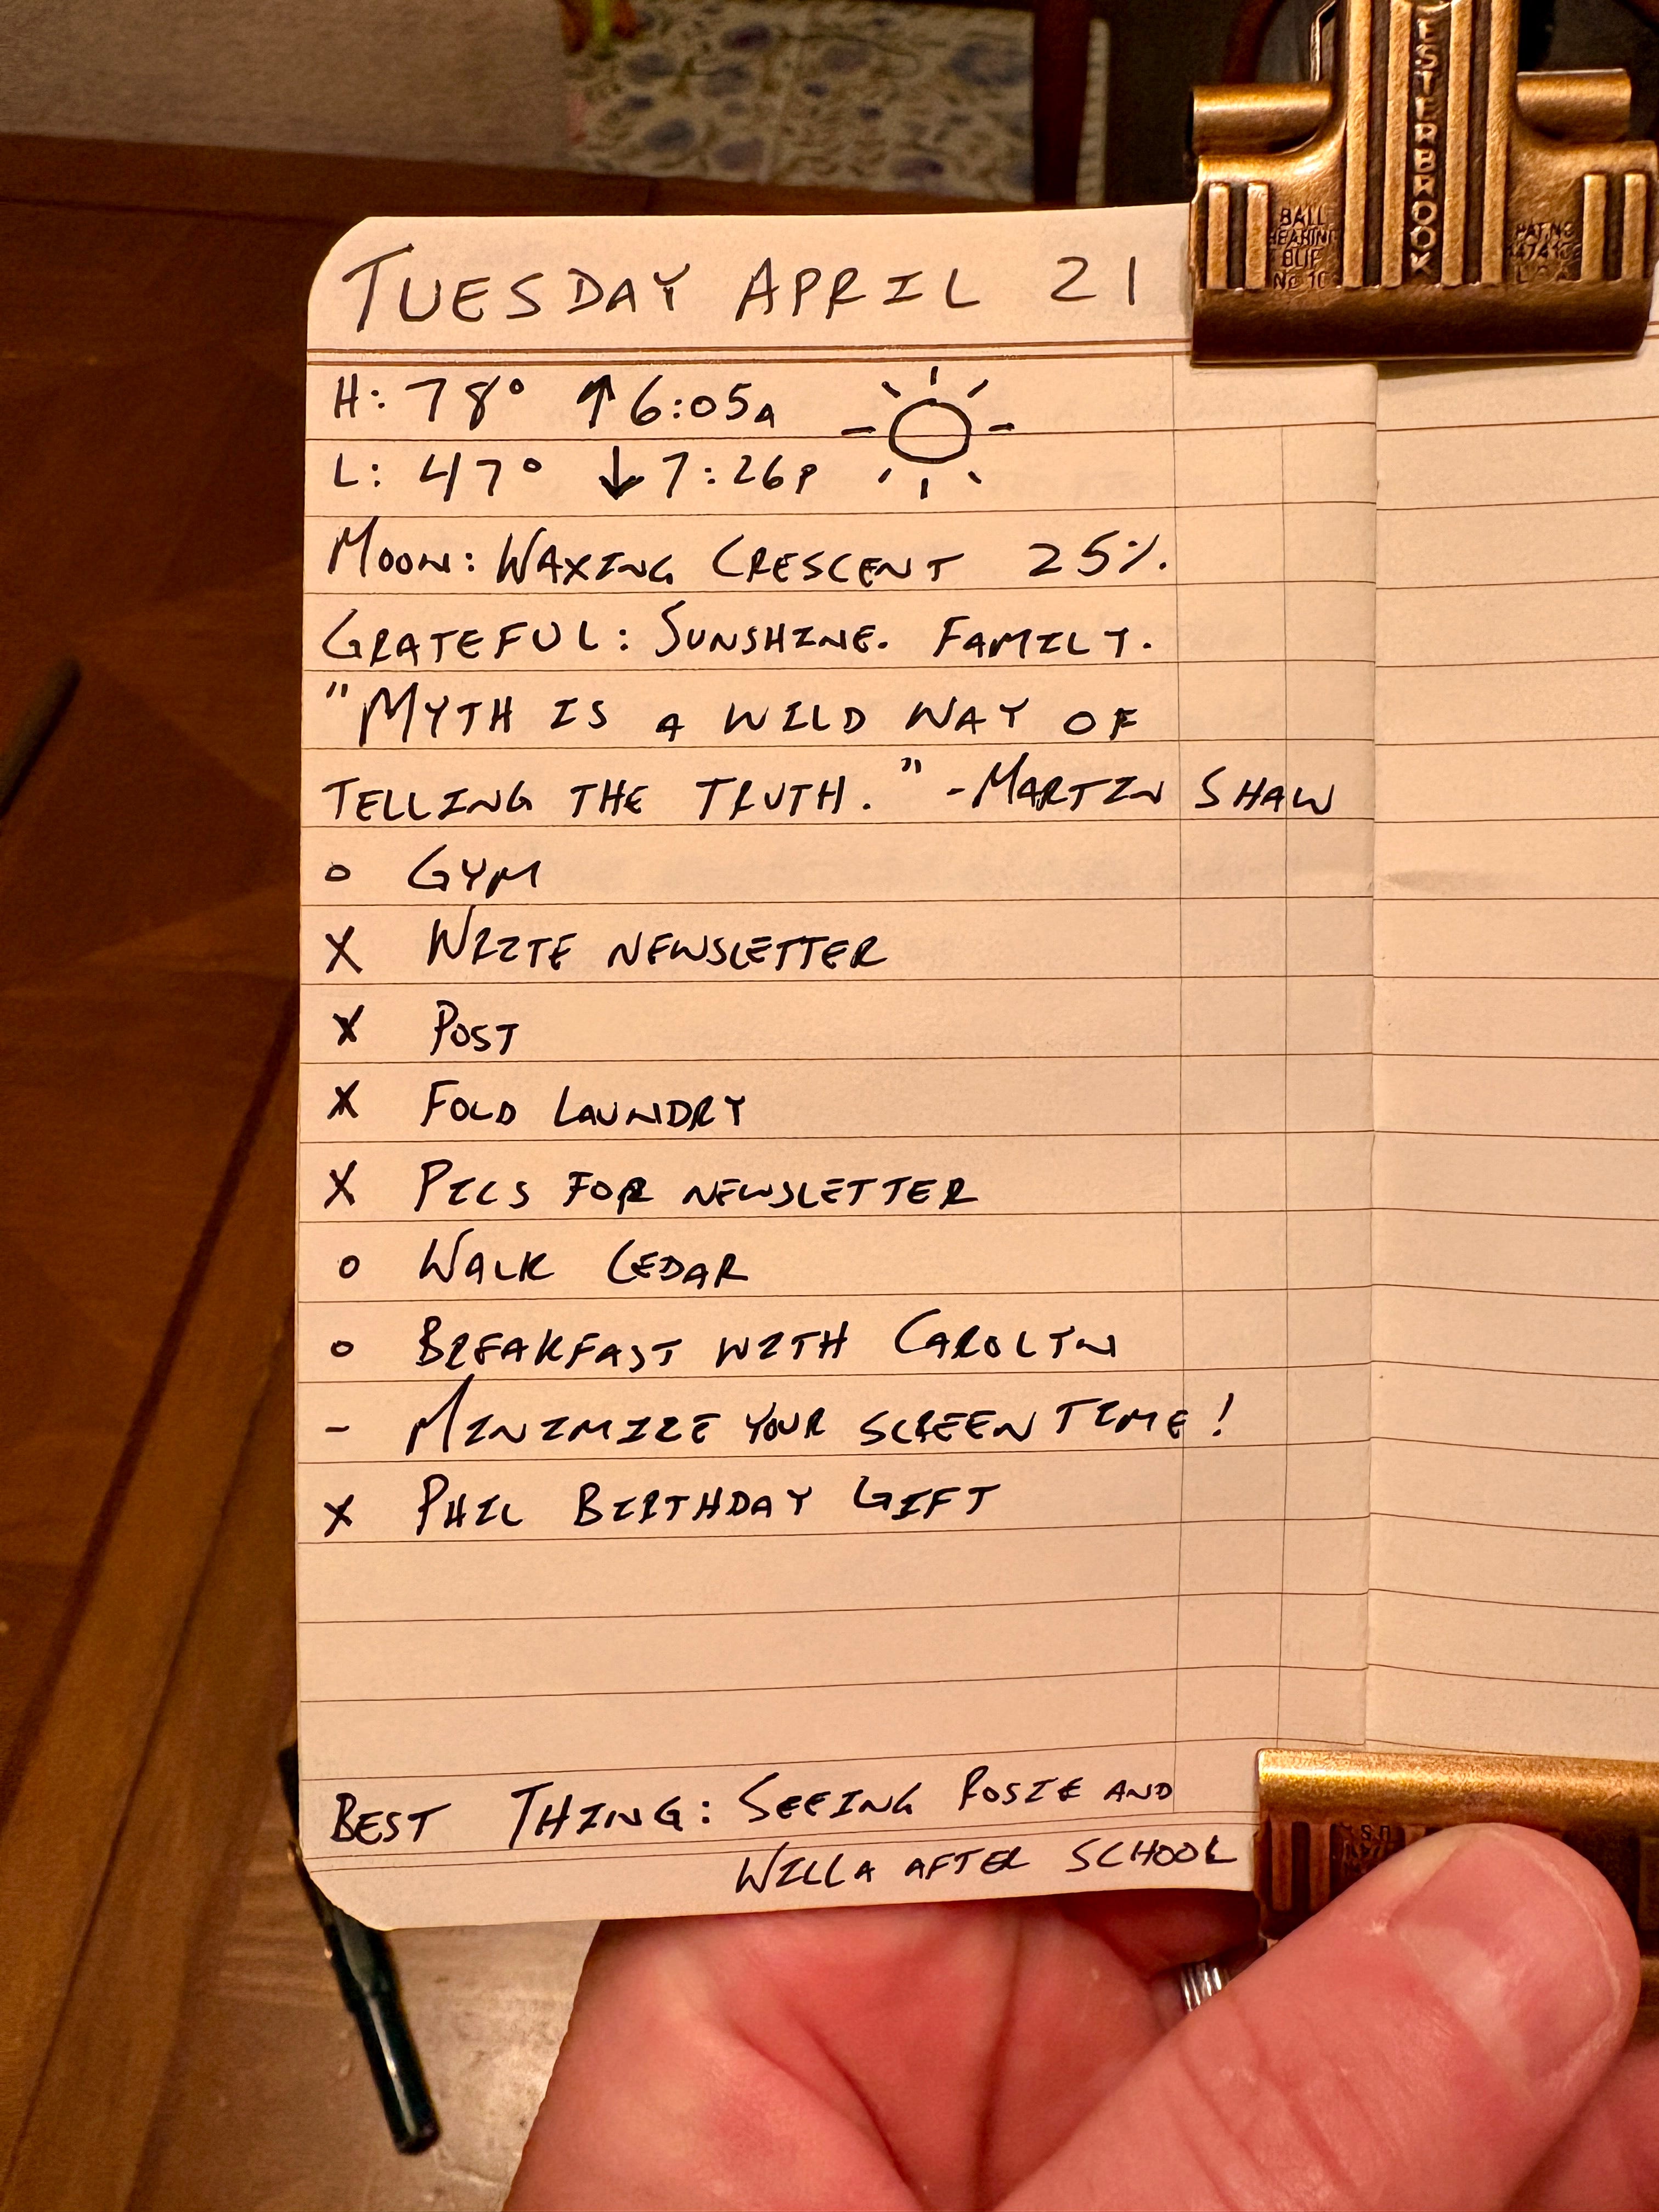 TUESDAY APRIL 21
H: 78° ↑6:05A
L: 47° ↓7:26P
MOON: WAXING CRESCENT 25%.
GRATEFUL: SUNSHINE. FAMILY.
"MYTH IS A WILD WAY OF
TELLING THE TRUTH." -MARTIN SHAW
o GYM
X WRITE NEWSLETTER
X POST
X FOLD LAUNDRY
X PICS FOR NEWSLETTER
o WALK CEDAR
o BREAKFAST WITH CAROLYN
- MINIMIZE YOUR SCREEN TIME!
X PHIL BIRTHDAY GIFT
BEST THING: SEEING ROSIE AND
WILLA AFTER SCHOOL
ESTERBROOK
BALL
BEARING
No 10
PAT. NO